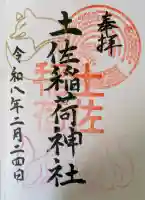 奉拝
土佐稲荷神社
令和八年二月二四日
土佐